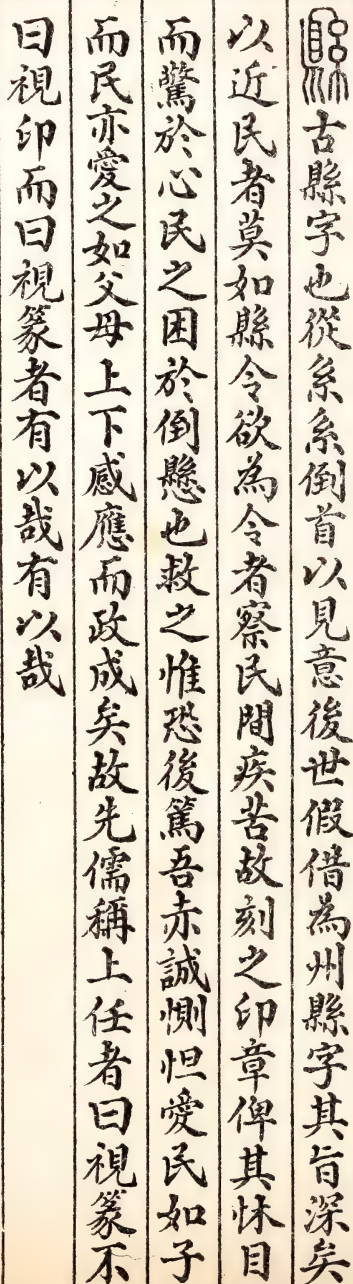 縣古縣字也從系系倒首以見意後世假借為州縣字其旨深矣
以近民者莫如縣令欲為令者察民間疾苦故刻之印章俾其怵目
而驚於心民之困於倒懸也救之惟恐後篤吾赤誠惻怛愛民如子
而民亦愛之如父母上下感應而政成矣故先儒稱上任者曰視篆不
曰視印而曰視篆者有以哉有以哉